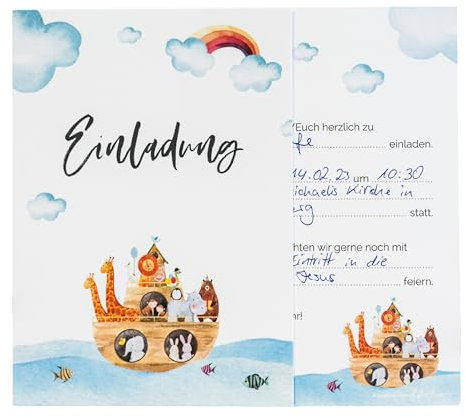 Einladung
/Euch herzlich zu
fe einladen.
14.02.23 um 10:30
ichaelis Kirche in
erg statt.
chten wir gerne noch mit
Eintritt in die
Jesus feiern.
hr!